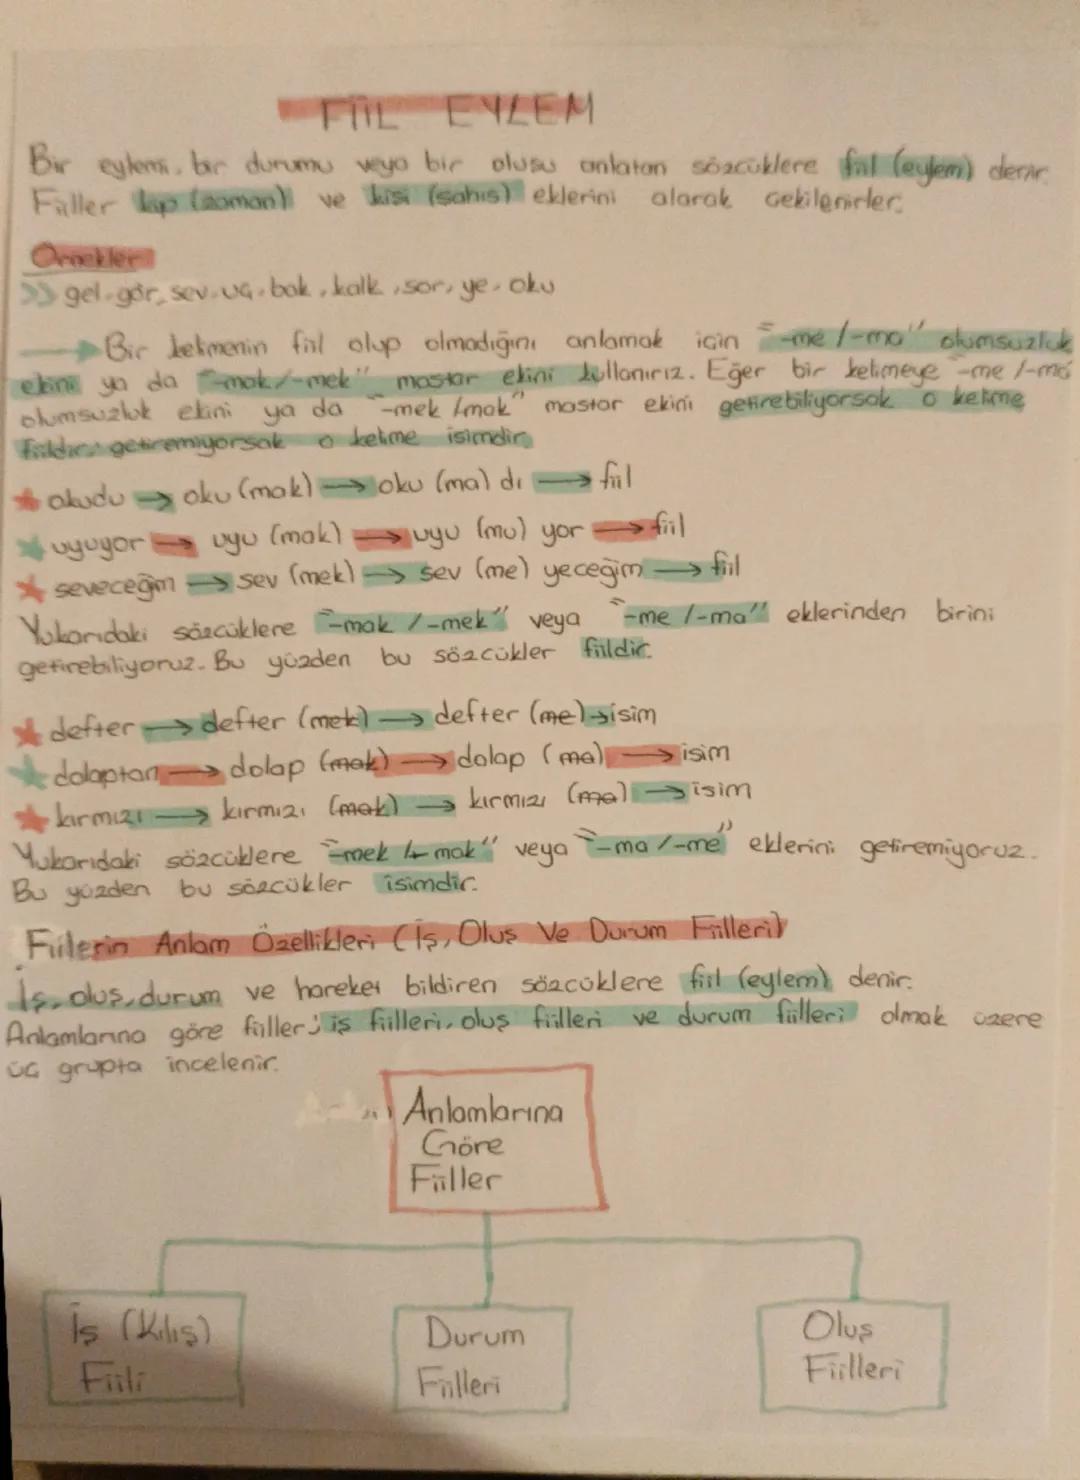 FİİL EYLEM
Bir eylemi, bir durumu veya bir oluşu anlatan sözcüklere fiil (eylem) denir.
Fiiller kip (zaman) ve kişi (şahıs) eklerini alarak çekilenirler.
Örnekler
>> gel, gör, sev, uç, bak, kalk, sor, ye, oku
→ Bir kelimenin fiil olup olmadığını anlamak için "-me / -ma" olumsuzluk
ekini ya da "-mak/-mek" mastar ekini kullanırız. Eğer bir kelimeye -me /-ma
olumsuzluk ekini ya da "-mek /mak" mastar ekini getirebiliyorsak o kelime
fiildir, getiremiyorsak o kelime isimdir.
★ okudu → oku (mak) → oku (ma) dı → fiil
★ uyuyor → uyu (mak) → uyu (mu) yor → fiil
★ seveceğim → sev (mek) → sev (me) yeceğim → fiil
Yukarıdaki sözcüklere "-mak / -mek" veya "-me /-ma" eklerinden birini
getirebiliyoruz. Bu yüzden bu sözcükler fiildir.
★ defter → defter (mek) → defter (me) → isim
★ dolaptan → dolap (mak) → dolap (ma) → isim
★ kırmızı → kırmızı (mak) → kırmızı (ma) → isim
Yukarıdaki sözcüklere "-mek /- mak" veya "-ma /-me" eklerini getiremiyoruz.
Bu yüzden bu sözcükler isimdir.
Fiilerin Anlam Özellikleri (İş, Oluş Ve Durum Fiilleri)
İş, oluş, durum ve hareket bildiren sözcüklere fiil (eylem) denir.
Anlamlarına göre fiiller; iş fiilleri, oluş fiilleri ve durum fiilleri olmak üzere
üç grupta incelenir.
Anlamlarına
Göre
Fiiller
İş (Kılış)
Fiili
Durum
Fiilleri
Oluş
Fiilleri